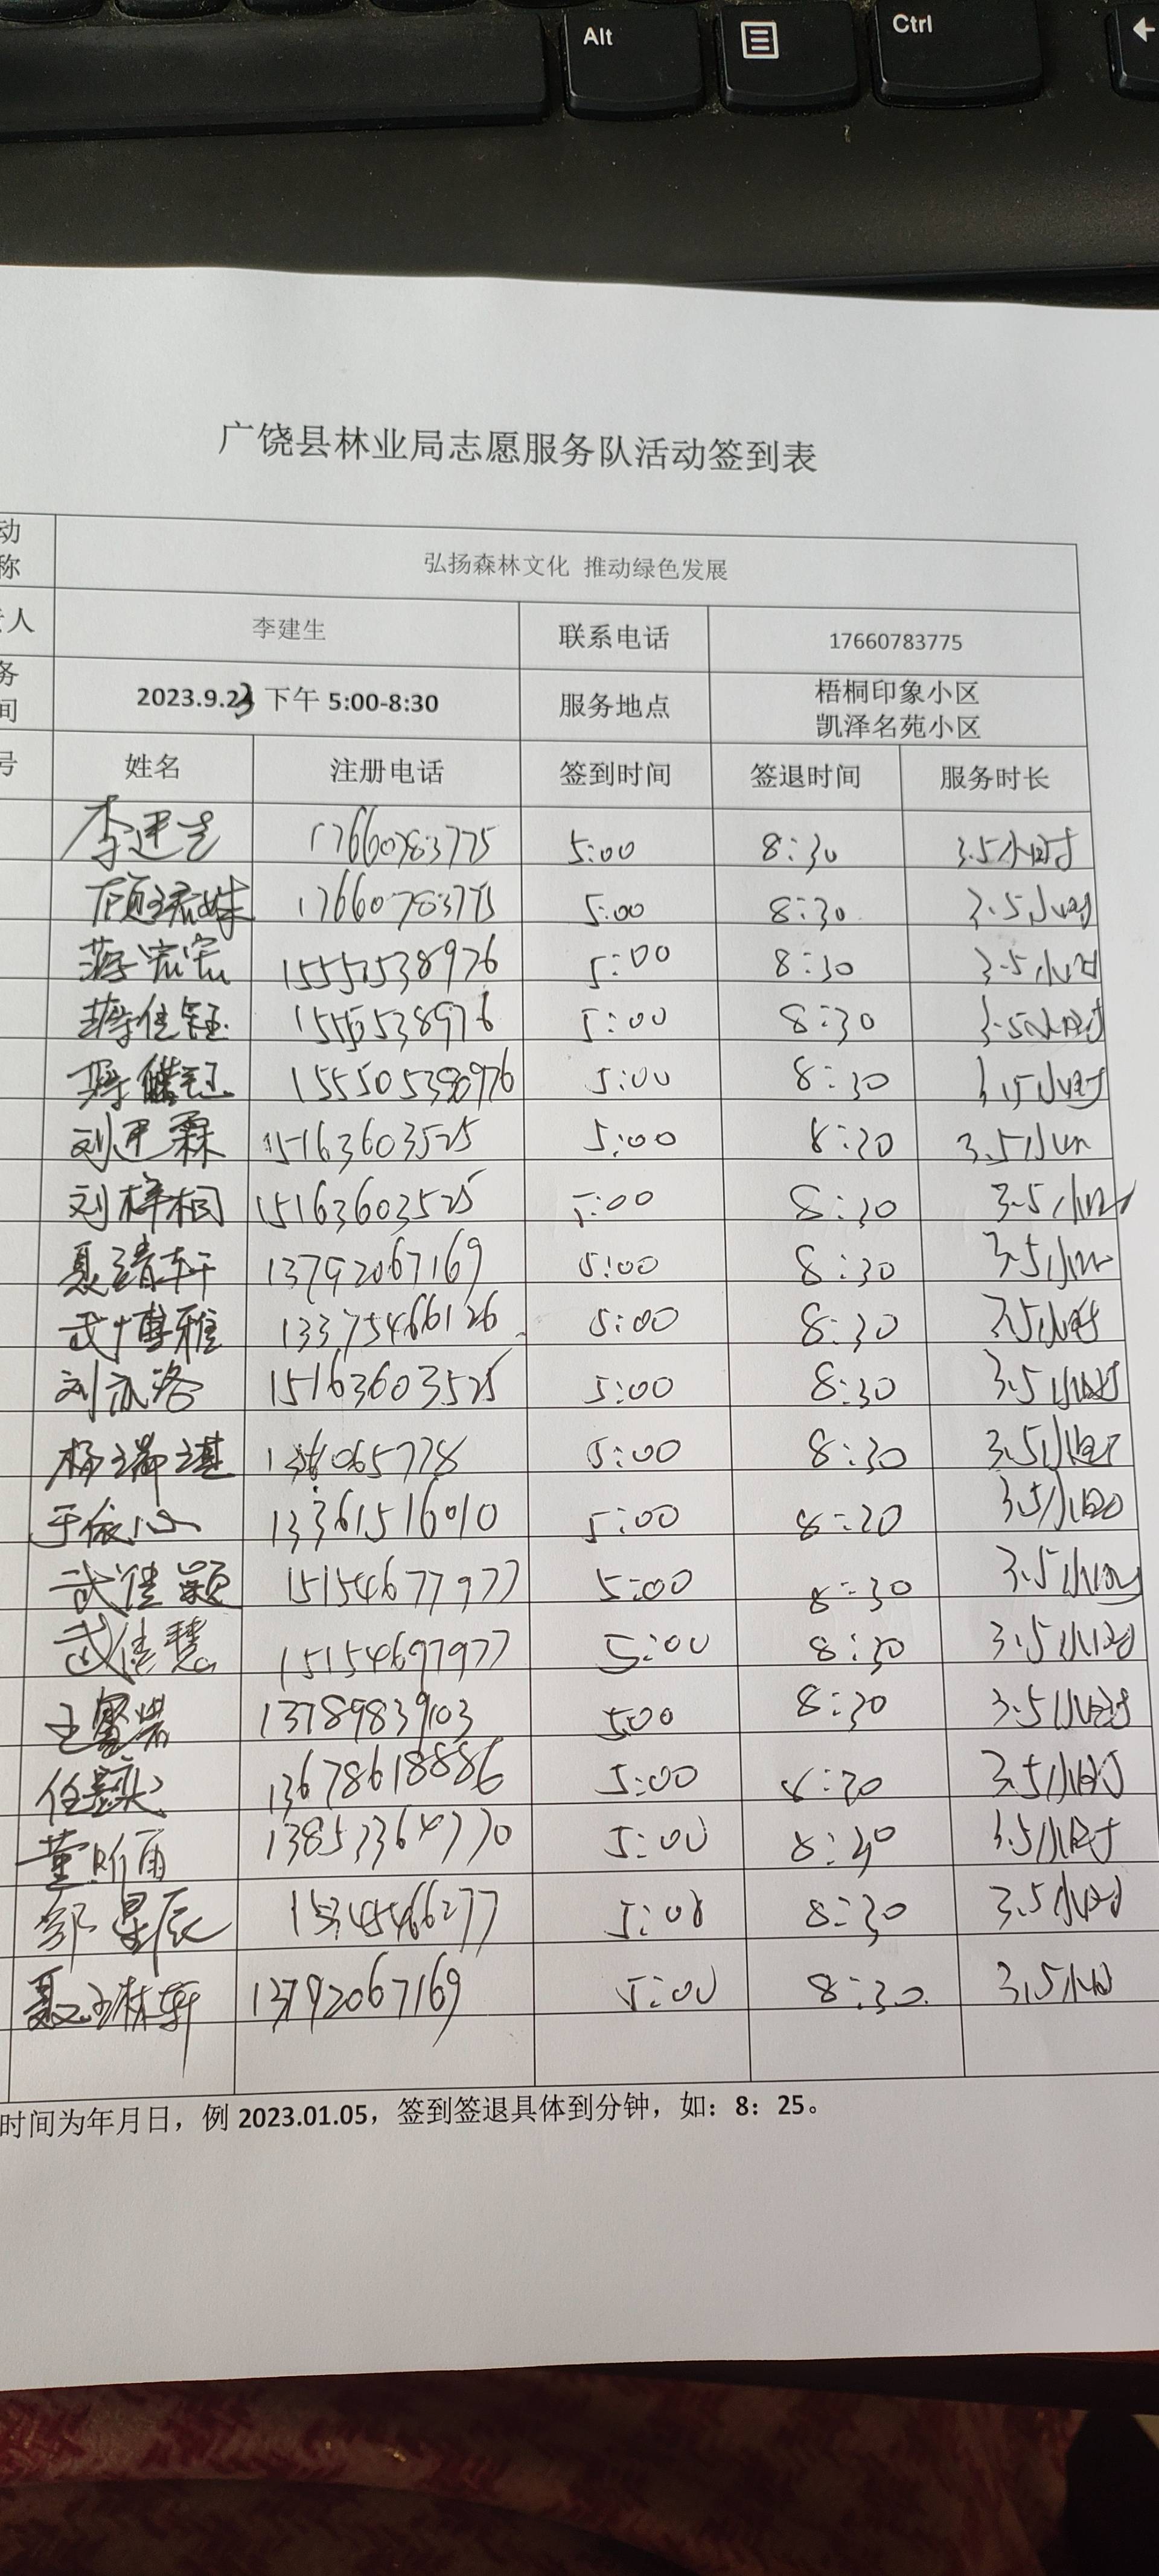 Alt
Ctrl
广饶县林业局志愿服务队活动签到表
动
称
弘扬森林文化 推动绿色发展
人 李建生 联系电话 17660783775
务
间
2023.9.23 下午 5:00-8:30 服务地点
梧桐印象小区
凯泽名苑小区
号 姓名 注册电话 签到时间 签退时间 服务时长
李建生 17660783775 5:00 8:30 3.5小时
17660783775 5:00 8:30 3.5小时
蒋宏宏 15550538976 5:00 8:30 3.5小时
蒋佳钰 5:00 8:30 3.5小时
5:00 8:30 3.5小时
刘建霖 15163603525 5:00 8:30 3.5小时
刘梓桐 15163603525 5:00 8:30 3.5小时
聂靖轩 13792067169 5:00 8:30 3.5小时
武博雅 13375466126 5:00 8:30 3.5小时
刘亦洛 15163603525 5:00 8:30 3.5小时
杨瑞湛 5:00 8:30 3.5小时
于依心 13361516010 5:00 8:30 3.5小时
武佳颖 15154677977 5:00 8:30 3.5小时
武佳慧 15154697977 5:00 8:30 3.5小时
13789839103 5:00 8:30 3.5小时
13678618886 5:00 8:30 3.5小时
13853364770 5:00 8:30 3.5小时
邹星辰 5:00 8:30 3.5小时
13792067169 5:00 8:30 3.5小时
时间为年月日，例 2023.01.05，签到签退具体到分钟，如：8：25。